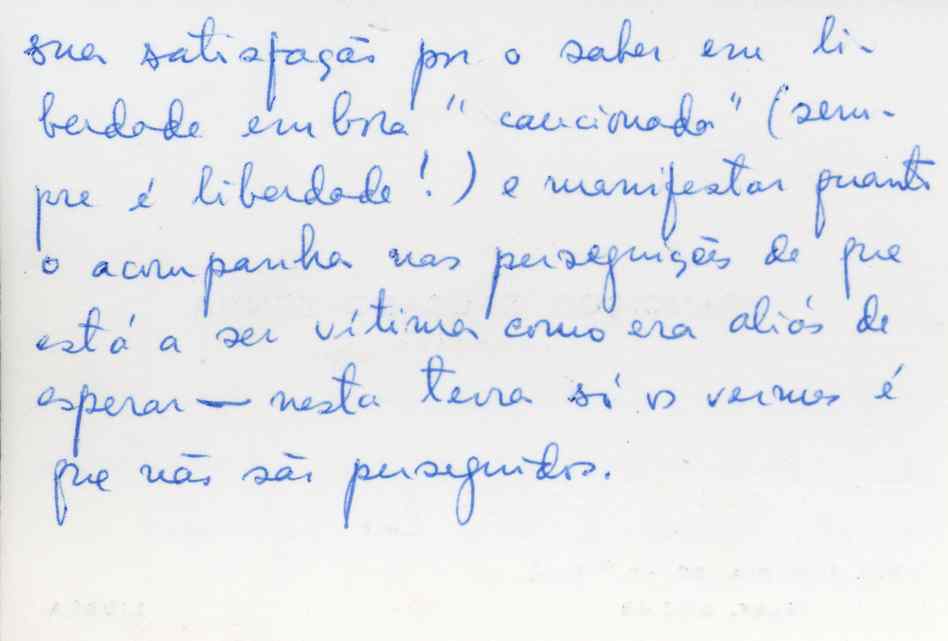 sua satisfação por o saber em li-
berdade embora "caucionada" (sem-
pre é liberdade!) e manifestar quanto
o acompanha nas perseguições de que
está a ser vítima como era aliás de
esperar — nesta terra só os vermes é
que não são perseguidos.